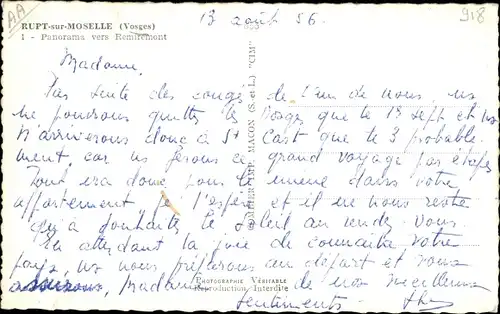 AA
RUPT-sur-MOSELLE (Vosges)
1 - Panorama vers Remiremont
13 août 56.
918
Madame,
Par suite des congés de l'un de nous, ns
ne pourrons quitter les Vosges que le 1er sept et ns
n'arriverons donc à St Cast que le 3 probable-
ment, car ns ferons ce grand voyage par étapes
Tout ira donc pour le mieux dans votre
appartement je l'espère et il ne nous reste
qu'à souhaiter le soleil au rendez vous.
En attendant la joie de connaître votre
pays, ns nous préparons au départ et vous
assurons, Madame, de nos meilleurs
sentiments.
COMBIER IMP. MACON (S.-et-L.) "CIM"
PHOTOGRAPHIE VÉRITABLE
Reproduction Interdite